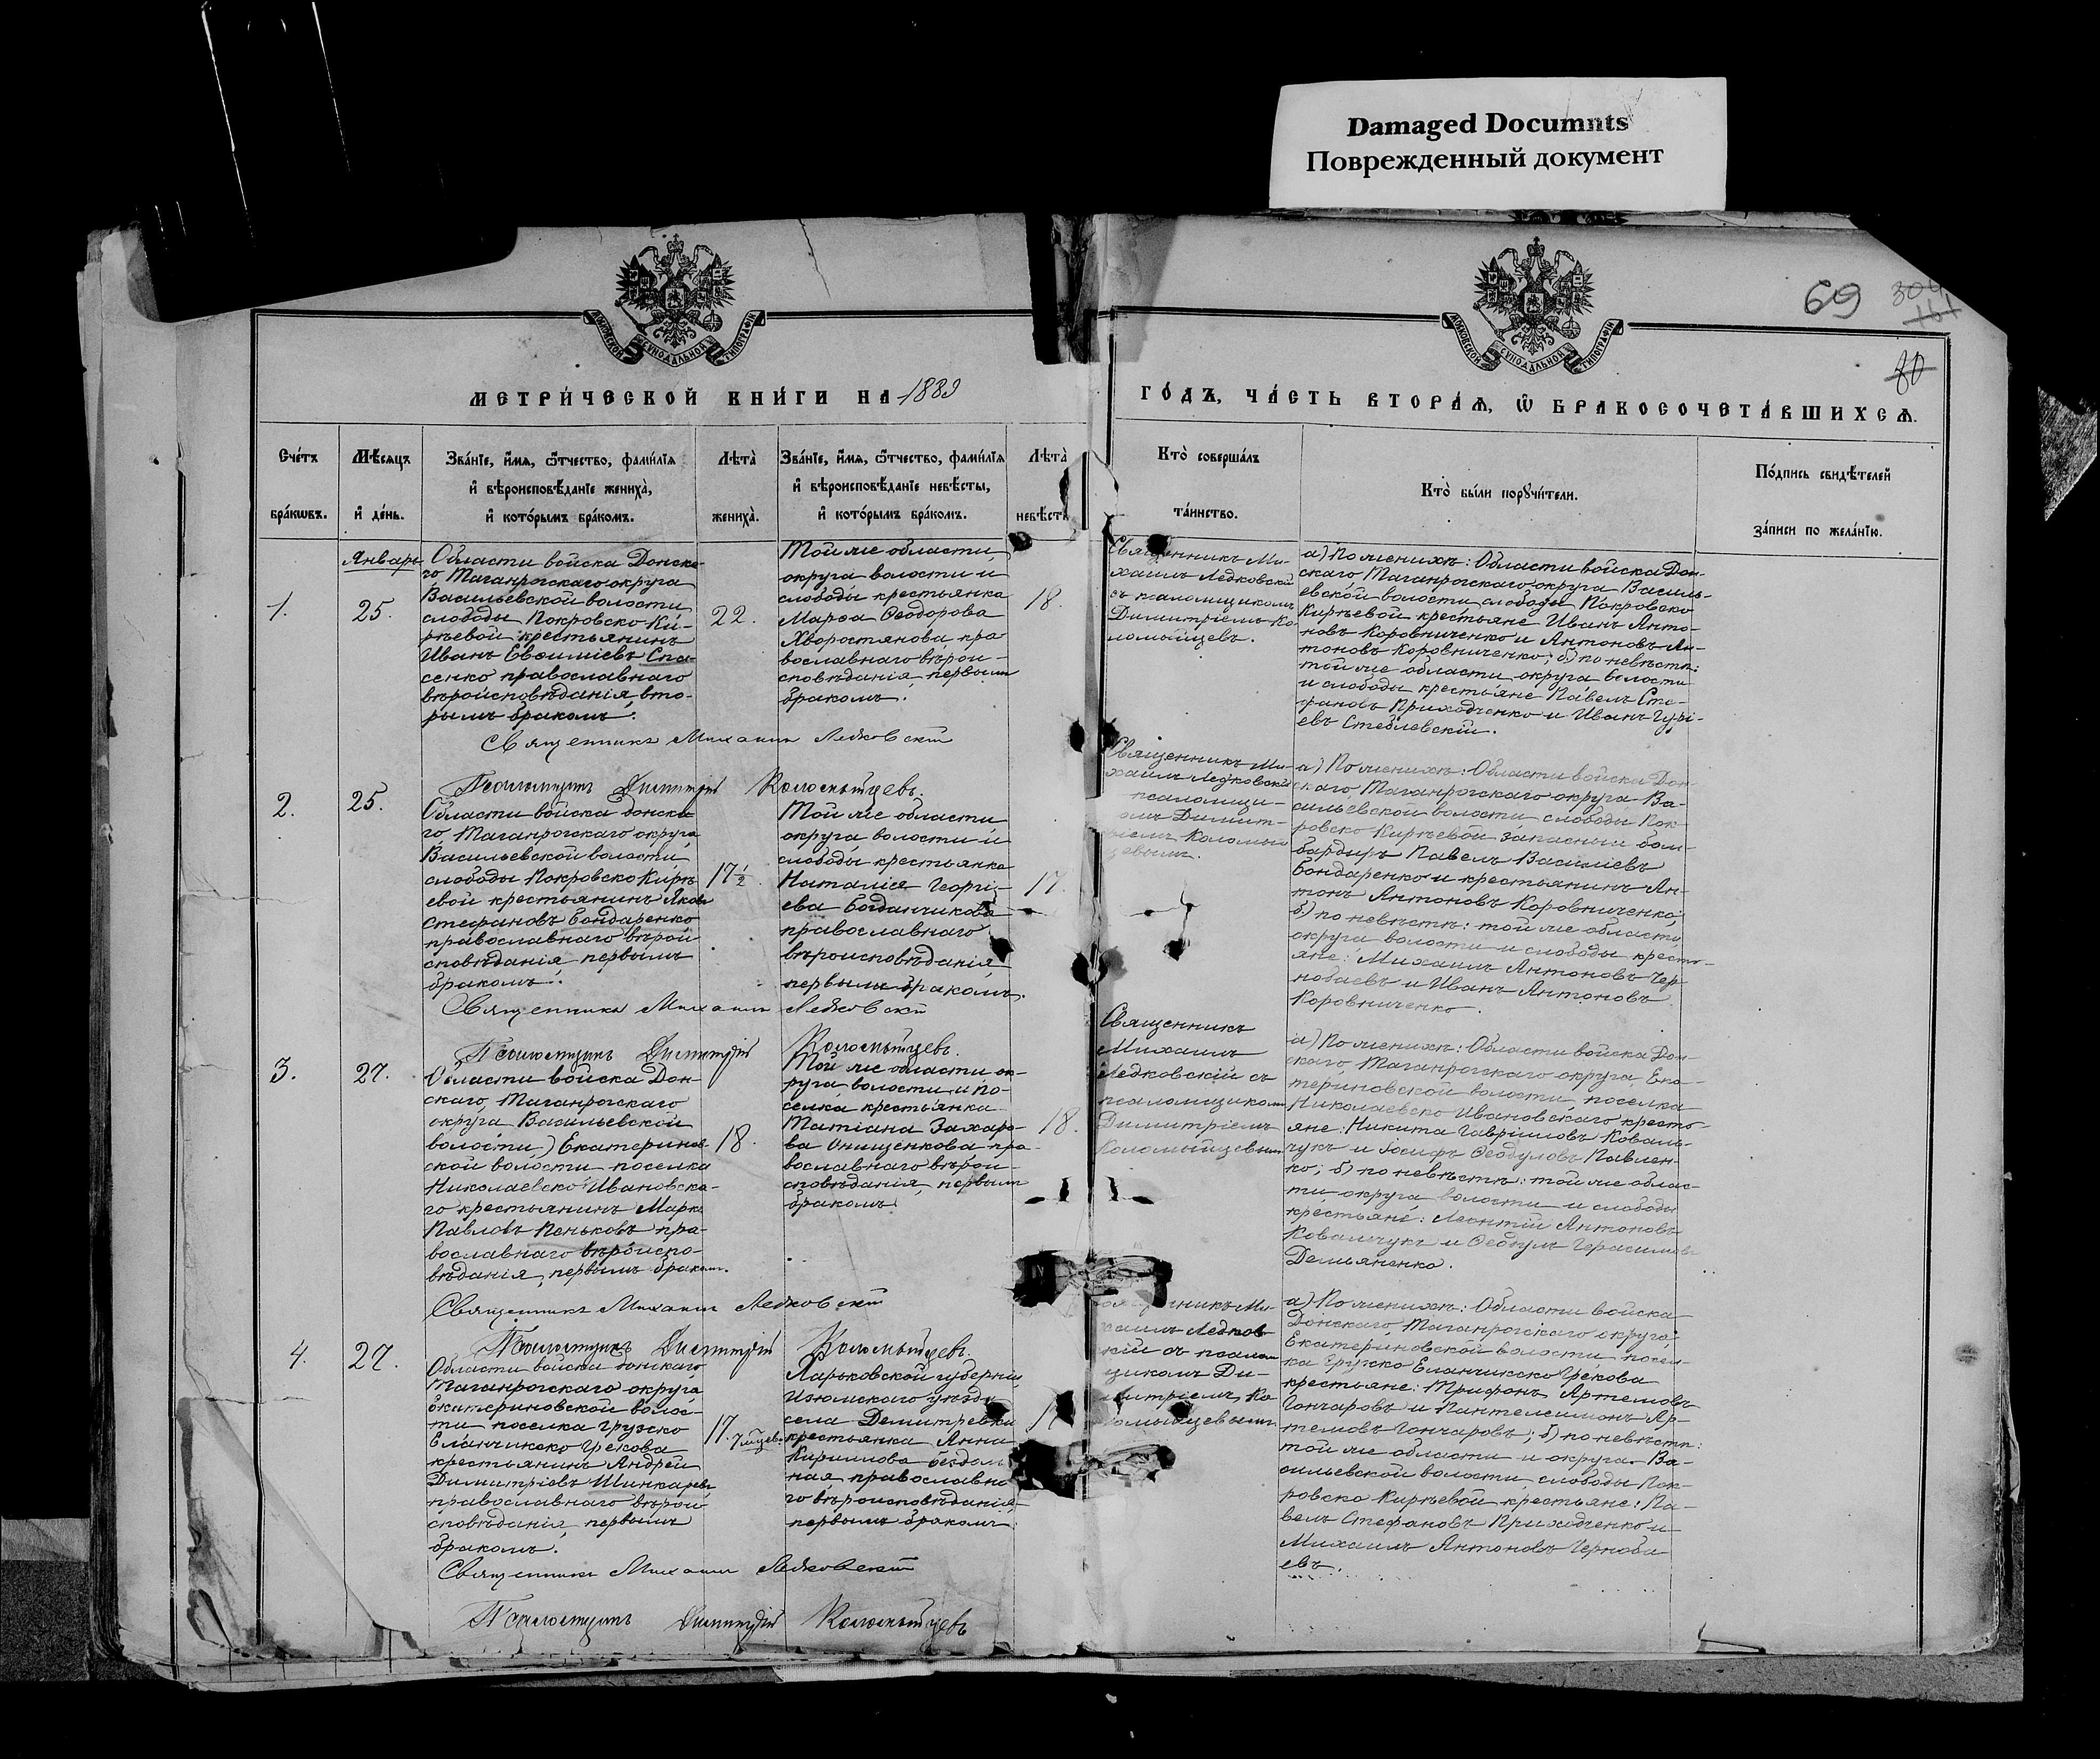 Damaged Documnts
Поврежденный документ
69
304
161
80
МОСКОВСКОЙ СѴНОДАЛЬНОЙ ТИПОГРАФІИ
МОСКОВСКОЙ СѴНОДАЛЬНОЙ ТИПОГРАФІИ
МЕТРИ́ЧЕСКОЙ КНИ́ГИ НА 1889
ГО́ДЪ, ЧА́СТЬ ВТОРА́Ѧ, Ѡ҆ БРАКОСОЧЕТА́ВШИХСѦ.
Сче́тъ
бра́кѡвъ.
Мѣ́сяцъ
и҆ де́нь.
Зва́нїе, и҆́мя, ѻ҆́тчество, фами́лїя
и҆ вѣроисповѣ́данїе жениха̀,
и҆ кото́рымъ бра́комъ.
Лѣта̀
жениха̀.
Зва́нїе, и҆́мя, ѻ҆́тчество, фами́лїя
и҆ вѣроисповѣ́данїе невѣ́сты,
и҆ кото́рымъ бра́комъ.
Лѣта̀
невѣ́ст
Кто̀ соверша́лъ
та́инство.
Кто̀ бы́ли порꙋчи́тели.
По́дпись свидѣ́телей
за́писи по жела́нїю.
1.
Январь
25.
Области войска Донска-
го Таганрогскаго округа
Васильевской волости
слободы Покровско-Ки-
рѣевой крестьянинъ
Иванъ Евѳиміевъ Спа-
сенко православнаго
вѣроисповѣданія, вто-
рымъ бракомъ.
22.
Той же области
округа волости и
слободы крестьянка
Марѳа Ѳеодорова
Хворостянова, пра
вославнаго вѣрои-
сповѣданія, первымъ
бракомъ.
18.
Священникъ Ми-
хаилъ Ледковскій
съ псаломщикомъ
Димитріемъ Ко
ломыйцевъ.
а) По женихѣ: Области войска Дон-
скаго Таганрогскаго округа Василь-
евской волости слободы Покровско
Кирѣевой крестьяне Иванъ Анто-
новъ Коровниченко и Антоновъ Ан-
тоновъ Коровниченко; б) по невѣстѣ:
той же области округа волости
и слободы крестьяне Павелъ Сте-
фановъ Приходченко и Иванъ Гурі-
евъ Стеблевскій.
Священникъ Михаилъ Ледковскій
Псаломщикъ Димитрій Коломыйцевъ.
2.
25.
Области войска донска
го Таганрогскаго округа
Васильевской волости
слободы Покровско Кирѣ
евой крестьянинъ Яковъ
Стефановъ Бондаренко
православнаго вѣрои
сповѣданія, первымъ
бракомъ.
17½.
Той же области
округа волости и
слободы крестьянка
Наталія Георгі-
ева Богданчикова
православнаго
вѣроисповѣданія,
первымъ бракомъ.
17.
Священникъ Ми-
хаилъ Ледковскій
псаломщи-
омъ Димит-
ріемъ Коломый
цевымъ.
а) По женихѣ: Области войска Дон-
скаго Таганрогскаго округа Ва-
сильевской волости слободы Пок-
ровско Кирѣевой запасный бом-
бардиръ Павелъ Василіевъ
Бондаренко и крестьянинъ Ан-
тонъ Антоновъ Коровниченко;
б) по невѣстѣ: той же области,
округа волости и слободы кресть-
яне: Михаилъ Антоновъ Чер
нобаевъ и Иванъ Антоновъ
Коровниченко.
Священникъ Михаилъ Ледковскій
Псаломщикъ Димитрій Коломыйцевъ.
3.
27.
Области войска Дон-
скаго, Таганрогскаго
округа Васильевской
волости,) Екатеринов-
ской волости поселка
Николаевско Ивановска-
го крестьянинъ Марко
Павловъ Пеньковъ пра-
вославнаго вѣроиспо-
вѣданія, первымъ браком.
18.
Той же области ок-
руга, волости и по-
селка крестьянка
Татіана Захаро-
ва Онищенкова пра-
вославнаго вѣрои-
сповѣданія, первымъ
бракомъ
18.
Священникъ
Михаилъ
Ледковскій съ
псаломщикомъ
Димитріемъ
Коломыйцевымъ
а) По женихѣ: Области войска Дон-
скаго, Таганрогскаго округа, Ека-
териновской волости, поселка
Николаевско Ивановскаго кресть-
яне: Никита Гавріиловъ Коваль-
чукъ и Іосифъ Ѳеодуловъ Павлен-
ко; б) по невѣстѣ: той же облас-
ти округа, волости и слободы
крестьяне: Леонтій Антоновъ
Ковальчукъ и Ѳеодулъ Герасимовъ
Демьяненко.
Священникъ Михаилъ Ледковскій
Псаломщикъ Димитрій Коломыйцевъ.
4.
27.
Области войска донскаго
Таганрогскаго округа
Екатериновской волос-
ти поселка Грузско
Еланчикско Грекова
крестьянинъ Андрей
Димитріевъ Шинкаревъ
православнаго вѣрои
сповѣданія, первымъ
бракомъ.
17.
Харьковской губерніи
Изюмскаго уѣзда
села Димитревки
крестьянка Анна
Кириллова Бездом
ная, православна
го вѣроисповѣданія,
первымъ бракомъ.
никъ Ми-
хаилъ Ледков
кій съ псалом
щикомъ Ди-
митріемъ Ко
ломыйцевымъ
а) По женихѣ: Области войска
Донскаго, Таганрогскаго округа,
Екатериновской волости, посел-
ка Грузско Еланчикско Грекова
крестьяне: Трифонъ Артемовъ
Гончаровъ и Пантелеимонъ Ар-
темовъ Гончаровъ; б) по невѣстѣ:
той же области и округа. Ва-
сильевской волости, слободы Пок-
ровско Кирѣевой крестьяне: Па-
велъ Стефановъ Приходченко и
Михаилъ Антоновъ Черноба
евъ.
Священникъ Михаилъ Ледковскій
Псаломщикъ Димитрій Коломыйцевъ